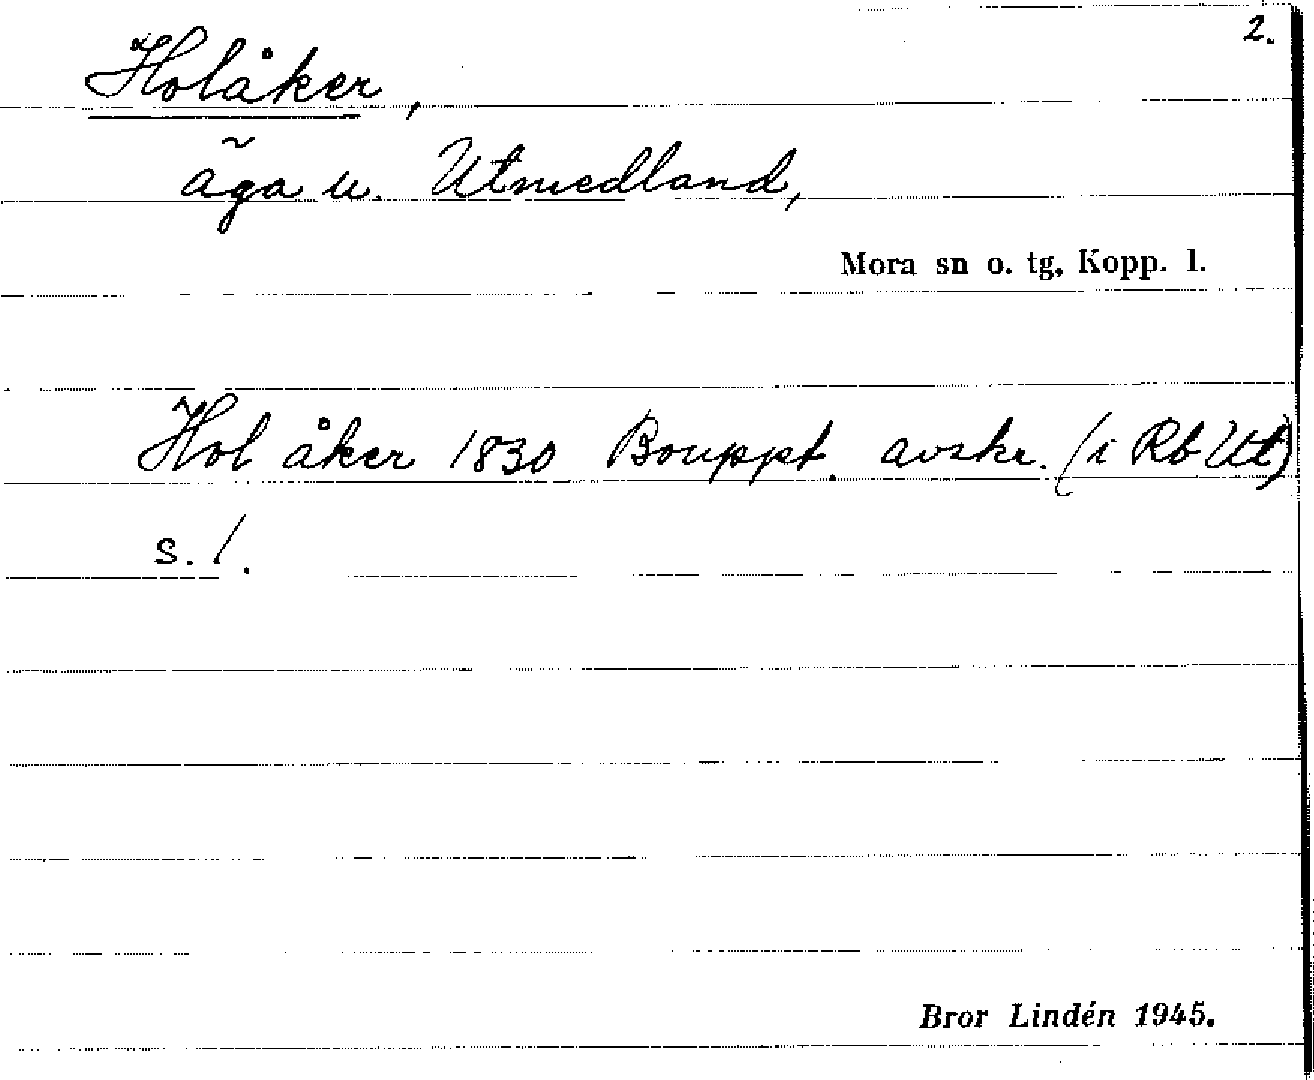 2.
Holåker,
äga u. Utmedland,
Mora sn o. tg, Kopp. l.
Hol åker 1830 Bouppt. avskr. (i Rb Ut)
s. 1.
Bror Lindén 1945.